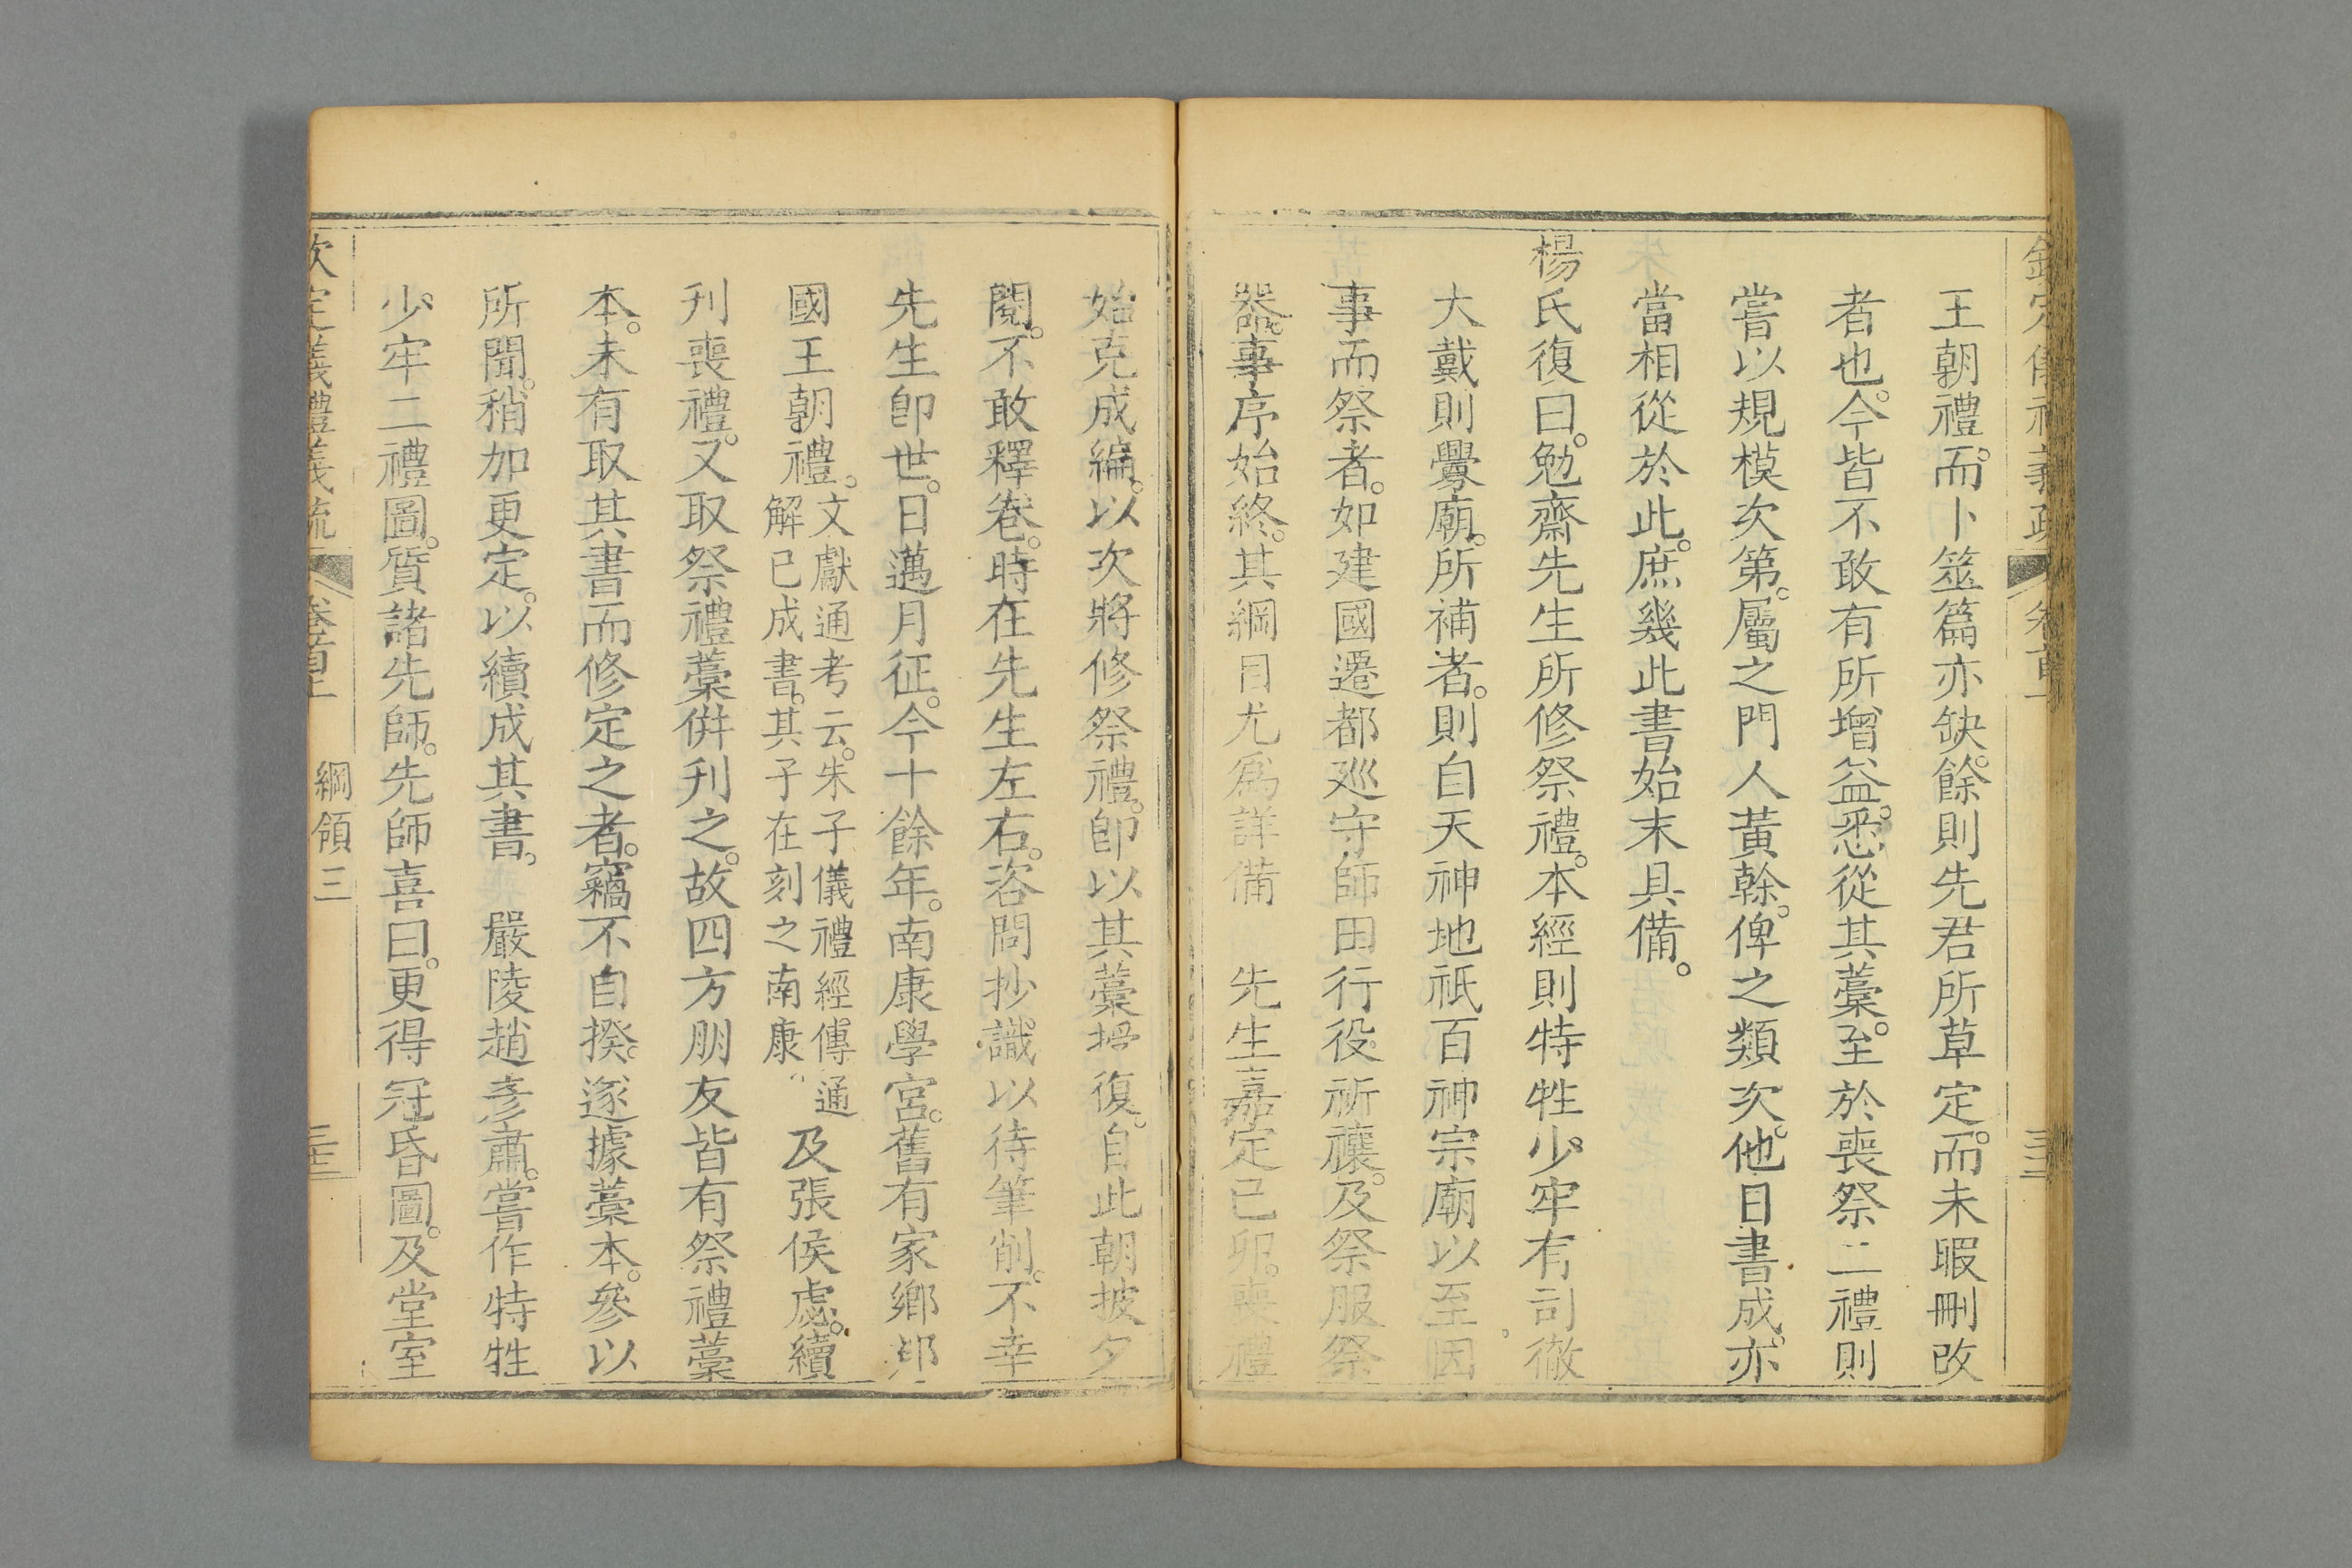 王朝禮。而卜筮篇亦缺。餘則先君所草定。而未暇刪改
者也。今皆不敢有所增益。悉從其藁。至於喪祭二禮則
嘗以規模次第。屬之門人黃榦。俾之類次。他日書成。亦
當相從於此。庶幾此書始末具備。
楊氏復曰。勉齋先生所修祭禮。本經則特牲少牢有司徹
大戴則釁廟。所補者。則自天神地祇百神宗廟以至因
事而祭者。如建國遷都巡守師田行役祈禳。及祭服祭
器。事序始終。其綱目尤爲詳備 先生嘉定己卯。喪禮
始克成編。以次將修祭禮。卽以其藁授復。自此朝披夕
閱。不敢釋卷。時在先生左右。咨問抄識以待筆削。不幸
先生卽世。日邁月征。今十餘年。南康學宮。舊有家鄉邦
國王朝禮。文獻通考云。朱子儀禮經傳通
解已成書。其子在刻之南康。及張侯虙。續
刋喪禮。又取祭禮藁併刋之。故四方朋友皆有祭禮藁
本。未有取其書而修定之者。竊不自揆。遂據藁本。參以
所聞。稍加更定。以續成其書。 嚴陵趙彥肅。嘗作特牲
少牢二禮圖。質諸先師。先師喜曰。更得冠昏圖。及堂室
欽定儀禮義疏 卷首上 綱領三